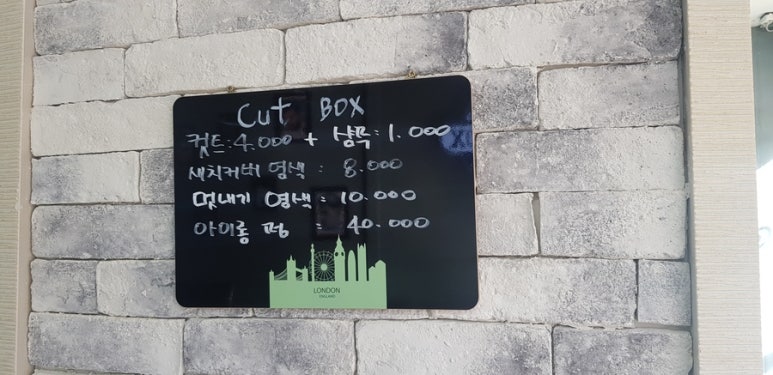 Cut BOX
컷트:4.000 + 샴푸:1.000
새치커버 염색 : 8.000
멋내기 염색 : 10.000
아이롱 펌 : 40.000
LONDON
ENGLAND